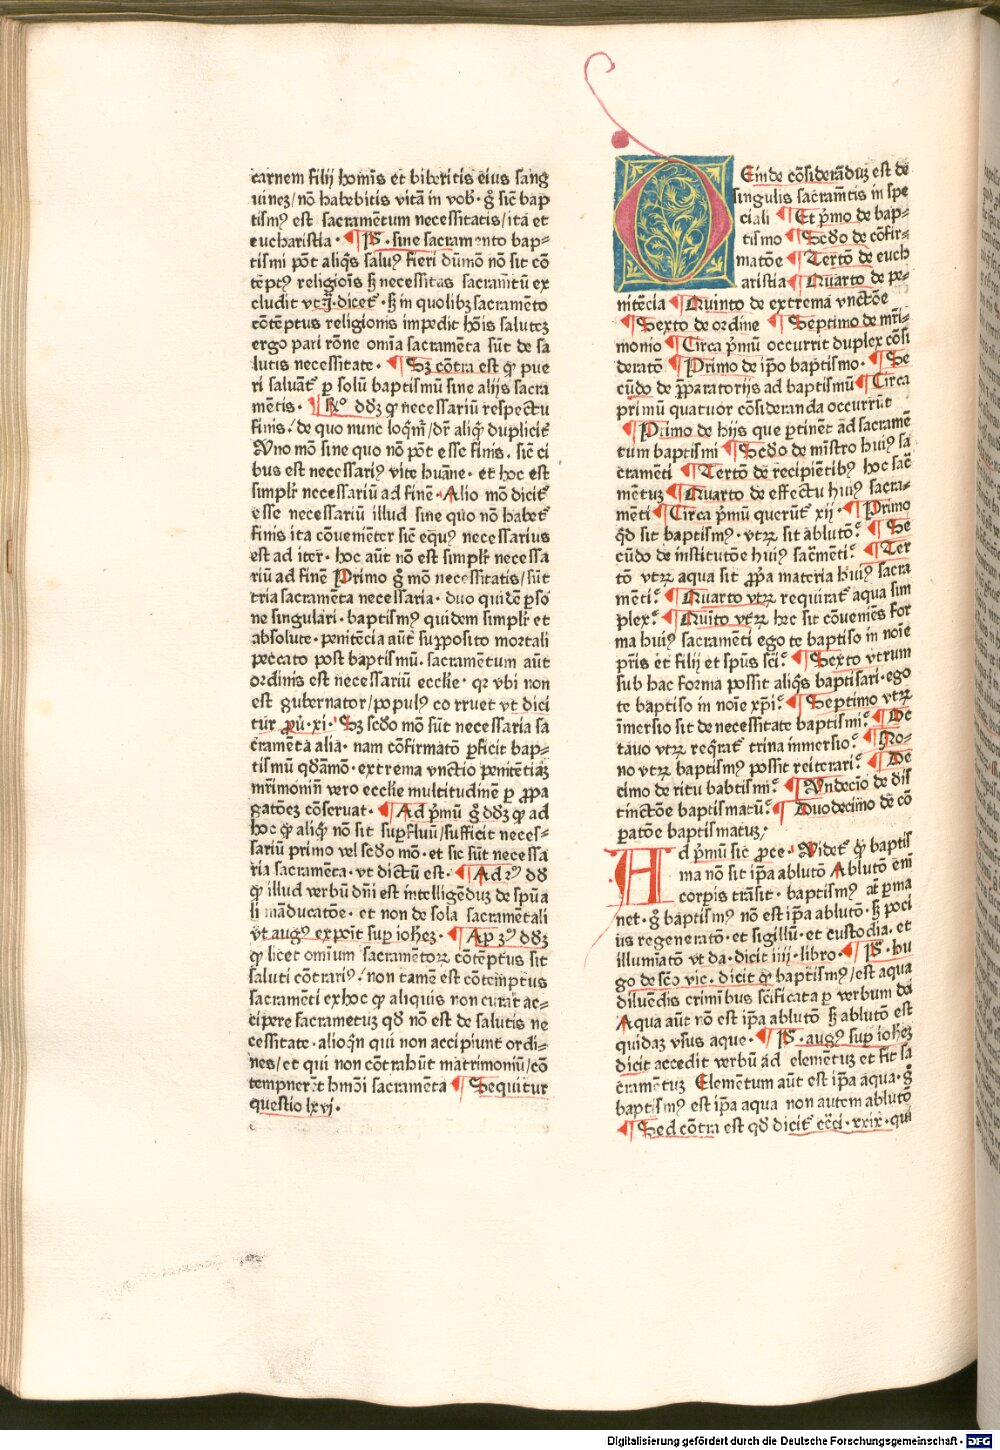 carnem filij homis et biberitis eius sang
uinez/nō habebitis vitā in vob. g̊ sic̄ bap
tismꝰ est sacramētum necessitatis/ita et
eucharistia. ¶ P̄. sine sacramento bap-
tismi pōt aliq̄s saluꝰ fieri dūmō nō sit cō
tēptꝰ religiōis sꝫ necessitas sacramētū ex
cludit vt .j. dicet. sꝫ in quolibꝫ sacramēto
cōtēptus religionis impedit hōis salutez
ergo pari rōne omīa sacramēta sūt de sa
lutis necessitate. ¶ Sꝫ cōtra est qꝫ pue
ri saluāt̄ ꝑ solū baptismū sine alijs sacra
mētis. ¶ R̄o ddꝫ qꝫ necessariū respectu
finis. de quo nunc loq̄m̄/dr̄ aliq̄ duplicit̄
Vno mō sine quo nō pōt esse finis. sic̄ ci
bus est necessariꝰ vite huāne. et hoc est
simplr̄ necessariū ad finē. Alio mō dicit̄
esse necessariū illud sine quo nō habet̄
finis ita cōueniēter sic̄ equꝰ necessarius
est ad iter. hoc aūt nō est simplr̄ necessa
riū ad finē Primo g̊ mō necessitatis/sūt
tria sacramēta necessaria. duo quidē ꝑso
ne singulari. baptismꝰ quidem simplr̄ et
absolute. penitēcia aūt supposito mortali
peccato post baptismū. sacramentum aūt
ordinis est necessariū ecclie. qr vbi non
est gubernator/populꝰ corruet vt dici
tur ꝓu. xi. Sꝫ scd̄o mō sūt necessaria sa
cramēta alia. nam cōfirmatō ꝑficit bap-
tismū qd̄āmō. extrema vnctio penitētiaꝫ
mr̄imoniū vero ecclie multitudinē ꝑ ꝓpa
gatōez cōseruat. ¶ Ad p̄mū g̊ ddꝫ qꝫ ad
hoc qꝫ aliq̄ nō sit suꝑfluū/sufficit neces-
sariū primo vel scd̄o mō. et sic sūt necessa
ria sacramēta. vt dictū est. ¶ Ad 2ꝰ dd̄
qꝫ illud verbū dn̄i est intelligēduꝫ de spūa
li māducatōe. et non de sola sacramētali
vt augꝰ expōit suꝑ iohez. ¶ Ad 3ꝰ ddꝫ
qꝫ licet omium sacramētoꝝ cōtēptus sit
saluti cōtrariꝰ. non tamē est cōtemptus
sacramēti ex hoc qꝫ aliquis non curat ac-
cipere sacrametuꝫ qd̄ nō est de salutis ne
cessitate. alioqn̄ qui non accipiunt ordi-
nes/et qui non cōtrahūt matrimoniū/cō
tempnerēt hmōi sacramēta ¶ Sequitur
questio lxvj.
DEinde cōsideranduꝫ est de
singulis sacramētis in spe
ciali ¶ Et p̄mo de bap-
tismo ¶ Scd̄o de cōfir-
matōe ¶ Tertō de euch
aristia ¶ Quarto de pe-
nitēcia ¶ Quinto de extrema vnctōe
¶ Sexto de ordine ¶ Septimo de mr̄i-
monio ¶ Circa p̄mū occurrit duplex cōsi
deratō ¶ Primo de ip̄o baptismo. ¶ Se
cūdo de p̄paratorijs ad baptismū ¶ Circa
primū quatuor cōsideranda occurrūt
¶ Primo de hijs que ꝑtinēt ad sacramē
tum baptismi ¶ Scd̄o de mīstro huiꝰ sa
cramēti ¶ Tertō de recipiētibꝰ hoc sac̄
mētuꝫ ¶ Quarto de effectu huiꝰ sacra-
mēti ¶ Circa p̄mū querūt̄ xij. ¶ Primo
qd̄ sit baptismꝰ. vtꝝ sit ablutō. ¶ Se
cūdo de institutōe huiꝰ sac̄mēti. ¶ Ter
tō vtꝝ aqua sit ꝓp̄a materia huiꝰ sacra
mēti. ¶ Quarto vtꝝ requirat̄ aqua sim
plex. ¶ Quīto vtꝝ hec sit cōueniēs for
ma huiꝰ sacramēti ego te baptiso in noīe
pr̄is et filij et spūs sc̄i. ¶ Sexto vtrum
sub hac forma possit aliq̄s baptisari. ego
te baptiso in noīe xp̄i. ¶ Septimo vtꝝ
īmersio sit de necessitate baptismi. ¶ Oc
tauo vtꝝ req̄rat̄ trina immersio. ¶ No-
no vtꝝ baptismꝰ possit reiterari. ¶ De
cimo de ritu babtismi. ¶ Vndecīo de dis
tinctōe baptismatū. ¶ Duodecīmo de cō
ꝑatōe baptismatuꝫ.
AD p̄mū sic ꝓce. Videt̄ qꝫ baptis
ma nō sit ip̄a ablutō Ablutō em̄
corpis trāsit. baptismꝰ at̄ ꝑma
net. g̊ baptismꝰ nō est ip̄a ablutō. sꝫ poci
us regeneratō. et sigillū. et custodia. et
illumiatō vt da. dicit iiij. libro. ¶ P̄. hu
go de sc̄o vic. dicit qꝫ baptismꝰ/est aqua
diluēdis crimībus sc̄ificata ꝑ verbum dei
Aqua aūt nō est ip̄a ablutō sꝫ ablutō est
quidaꝫ vsus aque. ¶ P̄. augꝰ suꝑ iohez
dicit accedit verbū ad elemētuꝫ et fit sa
cramētuꝫ Elemētum aūt est ip̄a aqua. g̊
baptismꝰ est ip̄a aqua non autem ablutō
¶ Sed cōtra est qd̄ dicit̄ ecc̄i. xxix. qui
Digitalisierung gefördert durch die Deutsche Forschungsgemeinschaft - DFG